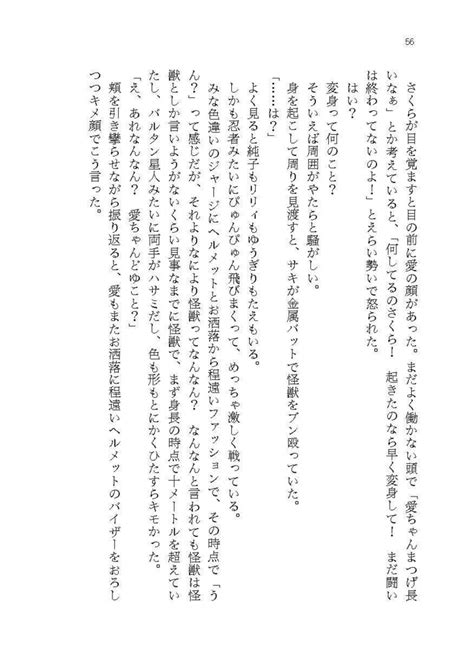 56
さくらが目を覚ますと目の前に愛の顔があった。まだよく働かない頭で「愛ちゃんまつげ長
いなぁ」とか考えていると、「何してるのさくら！　起きたのなら早く変身して！　まだ闘い
は終わってないのよ！」とえらい勢いで怒られた。
はい？
変身って何のこと？
そういえば周囲がやたらと騒がしい。
身を起こして周りを見渡すと、サキが金属バットで怪獣をブン殴っていた。
「……は？」
よく見ると純子もリリィもゆうぎりもたえもいる。
しかも忍者みたいにびゅんびゅん飛びまくって、めっちゃ激しく戦っている。
みな色違いのジャージにヘルメットとお洒落から程遠いファッションで、その時点で「う
ん？」って感じだが、それよりなにより怪獣ってなんなん？　なんなんと言われても怪獣は怪
獣としか言いようがないくらい見事なまでに怪獣で、まず身長の時点で十メートルを超えてい
たし、バルタン星人みたいに両手がハサミだし、色も形もとにかくひたすらキモかった。
「え、あれなんなん？　愛ちゃんどゆこと？」
頬を引き攣らせながら振り返ると、愛もまたお洒落に程遠いヘルメットのバイザーをおろし
つつキメ顔でこう言った。